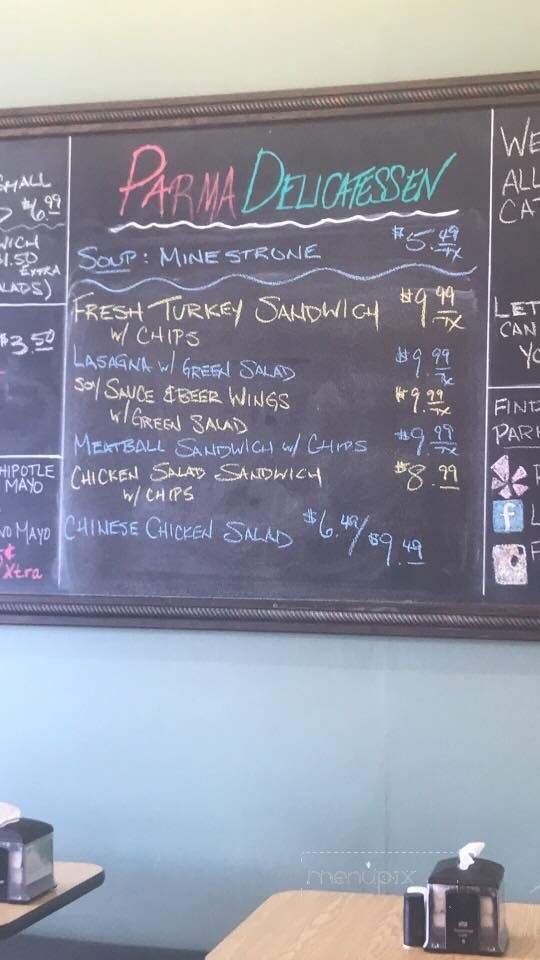 SMALL
$6.99
WICH
$1.50
EXTRA
LADS)
$3.50
HIPOTLE
MAYO
MAYO
Xtra
PARMA DELICATESSEN
SOUP: MINESTRONE $5.49 TX
FRESH TURKEY SANDWICH $9.99 TX
W/ CHIPS
LASAGNA W/ GREEN SALAD $9.99 TX
SOY SAUCE & BEER WINGS $9.99 TX
W/ GREEN SALAD
MEATBALL SANDWICH W/ CHIPS $9.99 TX
CHICKEN SALAD SANDWICH $8.99
W/ CHIPS
CHINESE CHICKEN SALAD $6.49/$9.49
WE
ALL
CAT
LET
CAN
YO
FIND
PAR
f
menupix